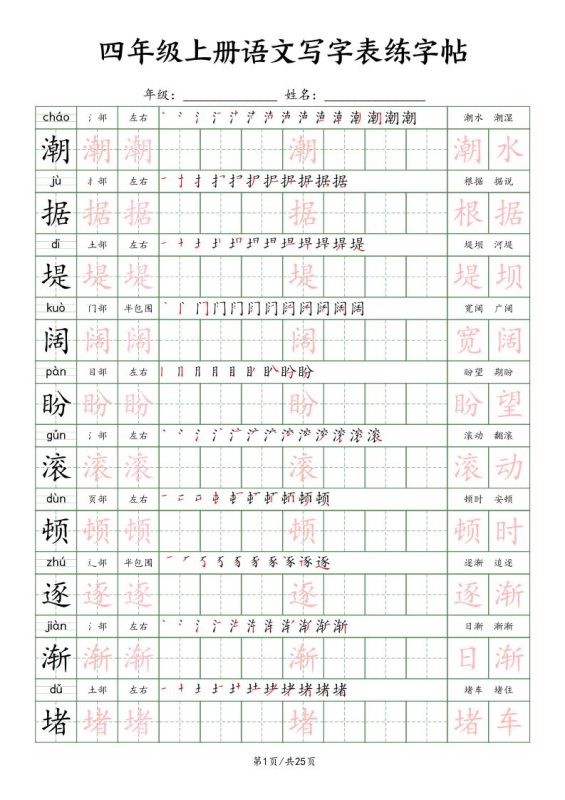 四年级上册语文写字表练字帖
年级：______________ 姓名：______________
cháo 氵部 左右 潮水 潮湿
潮 潮 潮 潮 潮 水
jù 扌部 左右 根据 据说
据 据 据 据 根 据
dī 土部 左右 堤坝 河堤
堤 堤 堤 堤 堤 坝
kuò 门部 半包围 宽阔 广阔
阔 阔 阔 阔 宽 阔
pàn 目部 左右 盼望 期盼
盼 盼 盼 盼 盼 望
gǔn 氵部 左右 滚动 翻滚
滚 滚 滚 滚 滚 动
dùn 页部 左右 顿时 安顿
顿 顿 顿 顿 顿 时
zhú 辶部 半包围 逐渐 追逐
逐 逐 逐 逐 逐 渐
jiàn 氵部 左右 日渐 渐渐
渐 渐 渐 渐 日 渐
dǔ 土部 左右 堵车 堵住
堵 堵 堵 堵 堵 车
第1页/共25页